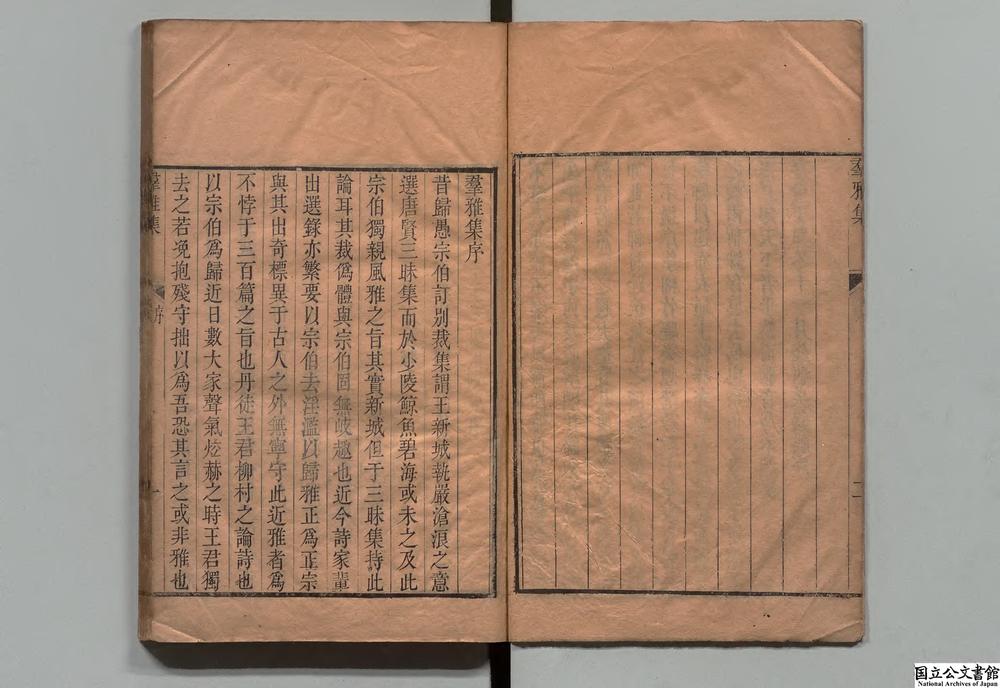 羣雅集
二
羣雅集序
昔歸愚宗伯訂别裁集謂王新城執嚴滄浪之意
選唐賢三昧集而於少陵鯨魚碧海或未之及此
宗伯獨親風雅之旨其實新城但于三昧集持此
論耳其裁僞體與宗伯固無歧趣也近今詩家輩
出選錄亦繁要以宗伯去淫濫以歸雅正爲正宗
與其出奇標異于古人之外無寧守此近雅者爲
不悖于三百篇之旨也丹徒王君柳村之論詩也
以宗伯爲歸近日數大家聲氣炫赫之時王君獨
去之若浼抱殘守拙以爲吾恐其言之或非雅也
羣雅集
序
一
国立公文書館
National Archives of Japan